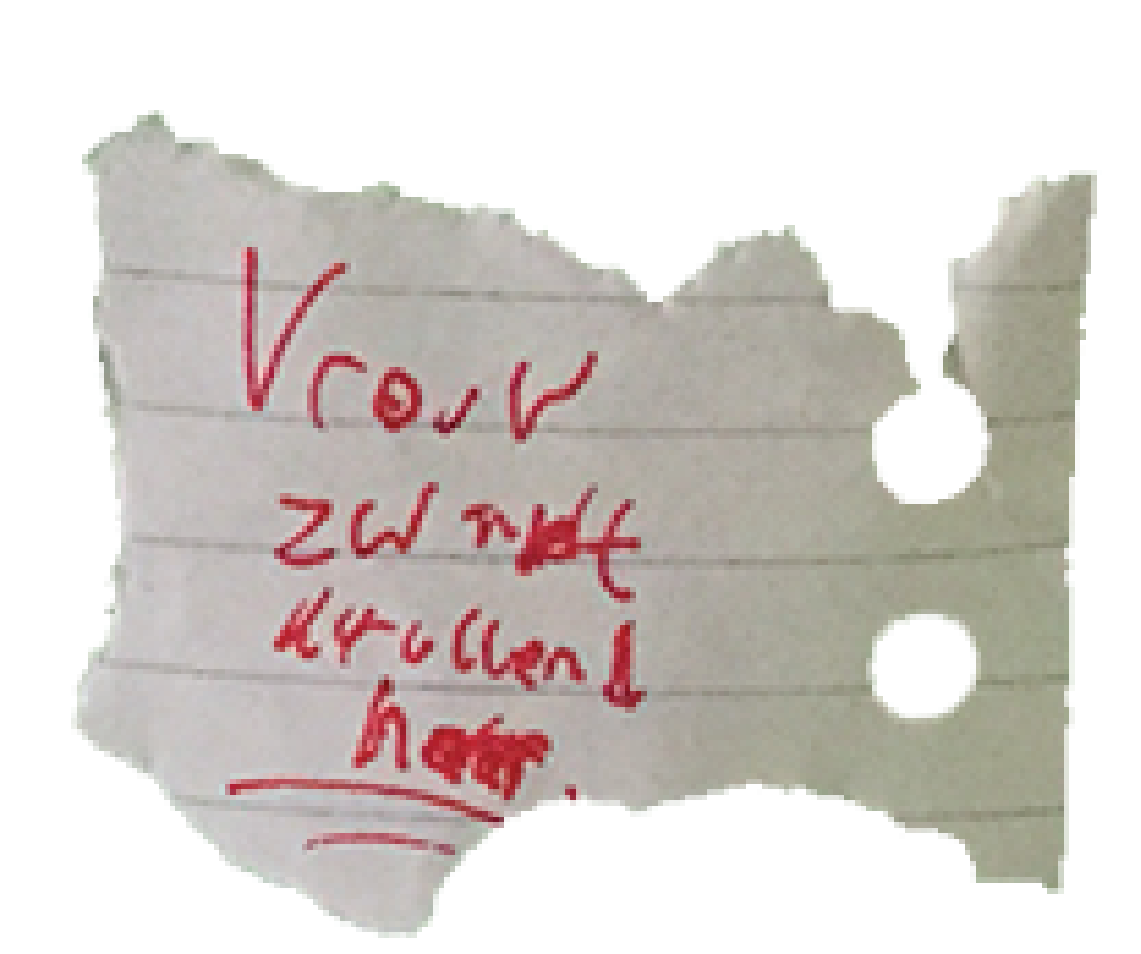 Vrouw
zw
krullend
haar.